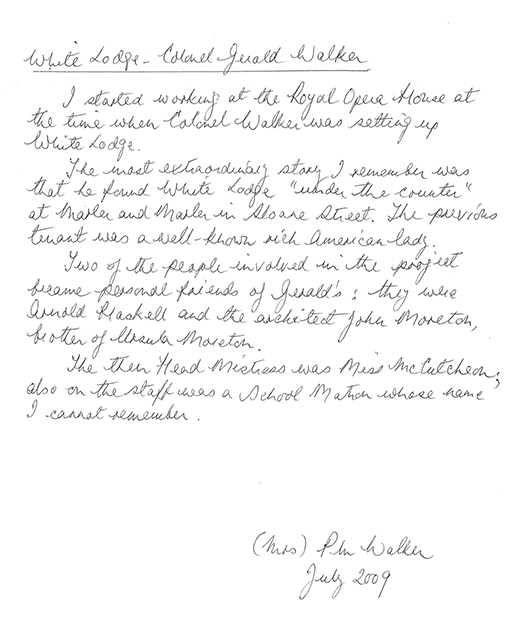 White Lodge - Colonel Gerald Walker
I started working at the Royal Opera House at
the time when Colonel Walker was setting up
White Lodge.
The most extraordinary story I remember was
that he found White Lodge "under the counter"
at Marler and Marler in Sloane Street. The previous
tenant was a well-known rich American lady.
Two of the people involved in the project
became personal friends of Gerald's: they were
Arnold Haskell and the architect John Moreton,
brother of Ursula Moreton.
The then Head Mistress was Miss McCutcheon;
also on the staff was a School Matron whose name
I cannot remember.
(Mrs) Walker
July 2009